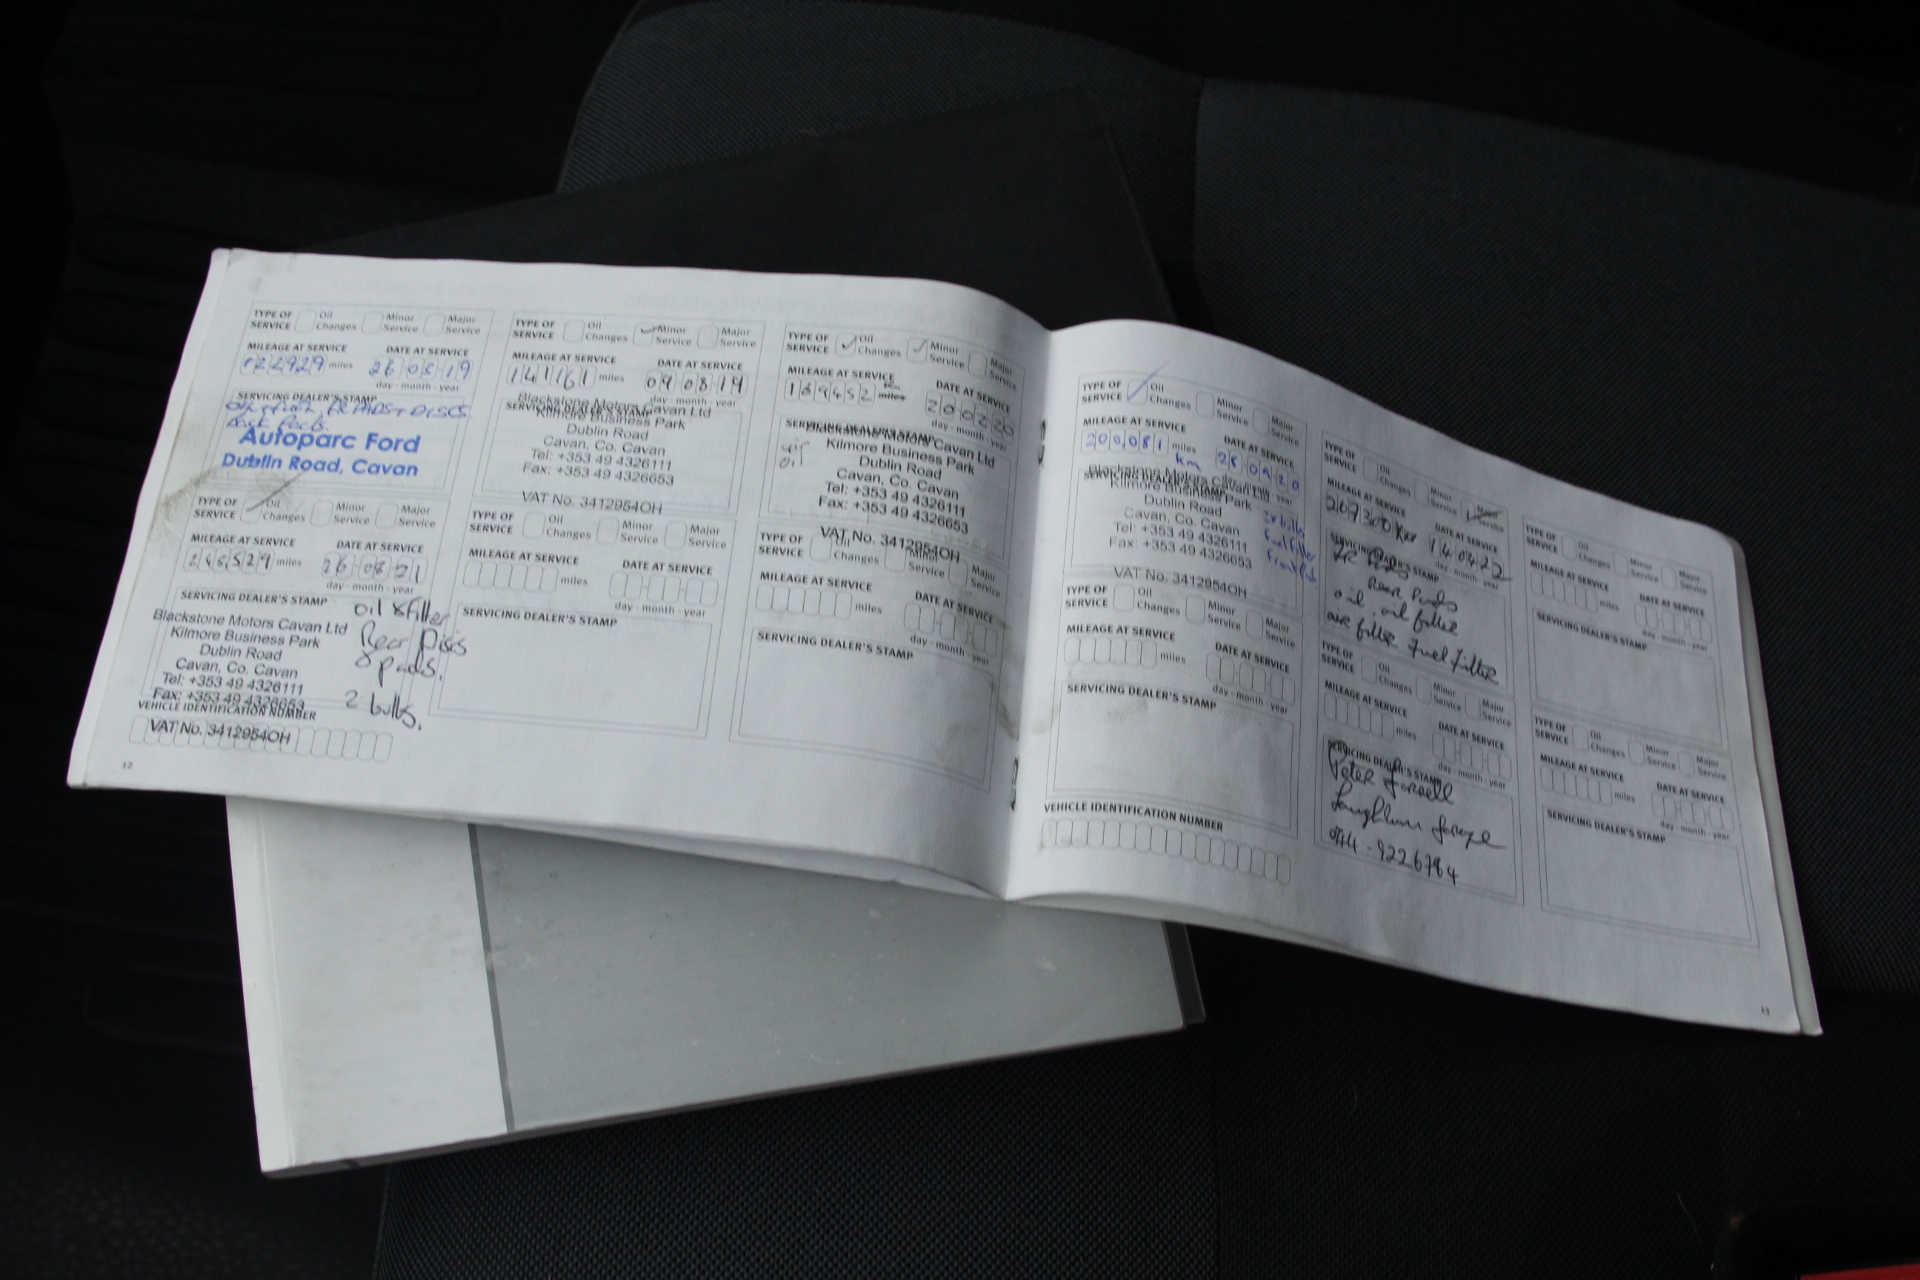 TYPE OF SERVICE Oil Changes Minor Service Major Service
MILEAGE AT SERVICE DATE AT SERVICE
122929 miles 26 03 19
day - month - year
SERVICING DEALER'S STAMP
PADS + DISCS
Autoparc Ford
Dublin Road, Cavan
TYPE OF SERVICE Oil Changes Minor Service Major Service
MILEAGE AT SERVICE DATE AT SERVICE
141161 miles 09 08 19
day - month - year
SERVICING DEALER'S STAMP
Blackstone Motors Cavan Ltd
Kilmore Business Park
Dublin Road
Cavan, Co. Cavan
Tel: +353 49 4326111
Fax: +353 49 4326653
VAT No. 3412954OH
TYPE OF SERVICE Oil Changes Minor Service Major Service
MILEAGE AT SERVICE DATE AT SERVICE
169452 miles km 20 02 20
day - month - year
SERVICING DEALER'S STAMP
air
oil
Blackstone Motors Cavan Ltd
Kilmore Business Park
Dublin Road
Cavan, Co. Cavan
Tel: +353 49 4326111
Fax: +353 49 4326653
VAT No. 3412954OH
TYPE OF SERVICE Oil Changes Minor Service Major Service
MILEAGE AT SERVICE DATE AT SERVICE
miles 26 08 21
day - month - year
SERVICING DEALER'S STAMP
oil & filter
Rear Discs
& pads.
2 bulbs.
Blackstone Motors Cavan Ltd
Kilmore Business Park
Dublin Road
Cavan, Co. Cavan
Tel: +353 49 4326111
Fax: +353 49 4326653
VEHICLE IDENTIFICATION NUMBER
VAT No. 3412954OH
12
TYPE OF SERVICE Oil Changes Minor Service Major Service
MILEAGE AT SERVICE DATE AT SERVICE
miles
day - month - year
SERVICING DEALER'S STAMP
TYPE OF SERVICE Oil Changes Minor Service Major Service
MILEAGE AT SERVICE DATE AT SERVICE
miles
day - month - year
SERVICING DEALER'S STAMP
TYPE OF SERVICE Oil Changes Minor Service Major Service
MILEAGE AT SERVICE DATE AT SERVICE
200081 miles km 28 09 20
day - month - year
SERVICING DEALER'S STAMP
Blackstone Motors Cavan Ltd
Kilmore Business Park
Dublin Road
Cavan, Co. Cavan
Tel: +353 49 4326111
Fax: +353 49 4326653
VAT No. 3412954OH
2x bulbs
Fuel Filter
Front Pads
TYPE OF SERVICE Oil Changes Minor Service Major Service
MILEAGE AT SERVICE DATE AT SERVICE
267300 km 14 04 22
day - month - year
SERVICING DEALER'S STAMP
Pads
Rear Pads
oil, oil filter
air filter Fuel Filter
TYPE OF SERVICE Oil Changes Minor Service Major Service
MILEAGE AT SERVICE DATE AT SERVICE
miles
day - month - year
SERVICING DEALER'S STAMP
TYPE OF SERVICE Oil Changes Minor Service Major Service
MILEAGE AT SERVICE DATE AT SERVICE
miles
day - month - year
SERVICING DEALER'S STAMP
VEHICLE IDENTIFICATION NUMBER
TYPE OF SERVICE Oil Changes Minor Service Major Service
MILEAGE AT SERVICE DATE AT SERVICE
miles
day - month - year
SERVICING DEALER'S STAMP
Peter
044-9226784
TYPE OF SERVICE Oil Changes Minor Service Major Service
MILEAGE AT SERVICE DATE AT SERVICE
miles
day - month - year
SERVICING DEALER'S STAMP
13